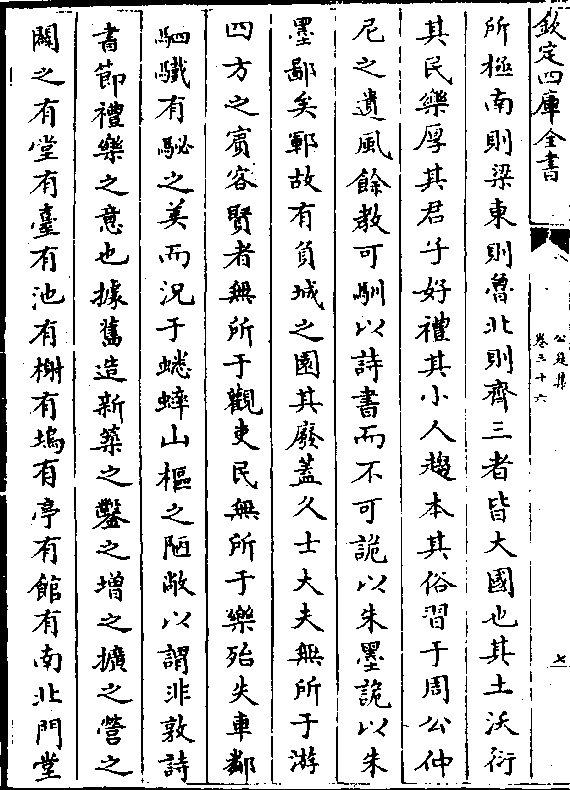 欽定四庫全書
公是集
卷三十六
七
所極南則梁東則魯北則齊三者皆大國也其土沃衍
其民樂厚其君子好禮其小人趨本其俗習于周公仲
尼之遺風餘教可馴以詩書而不可詭以朱墨詭以朱
墨鄙矣鄆故有負城之園其廢蓋久士大夫無所于游
四方之賓客賢者無所于觀吏民無所于樂殆失車鄰
駟驖有駜之美而況于蟋蟀山樞之陋敞以謂非敦詩
書節禮樂之意也據舊造新築之鑿之増之擴之營之
闢之有堂有臺有池有榭有塢有亭有館有南北門堂